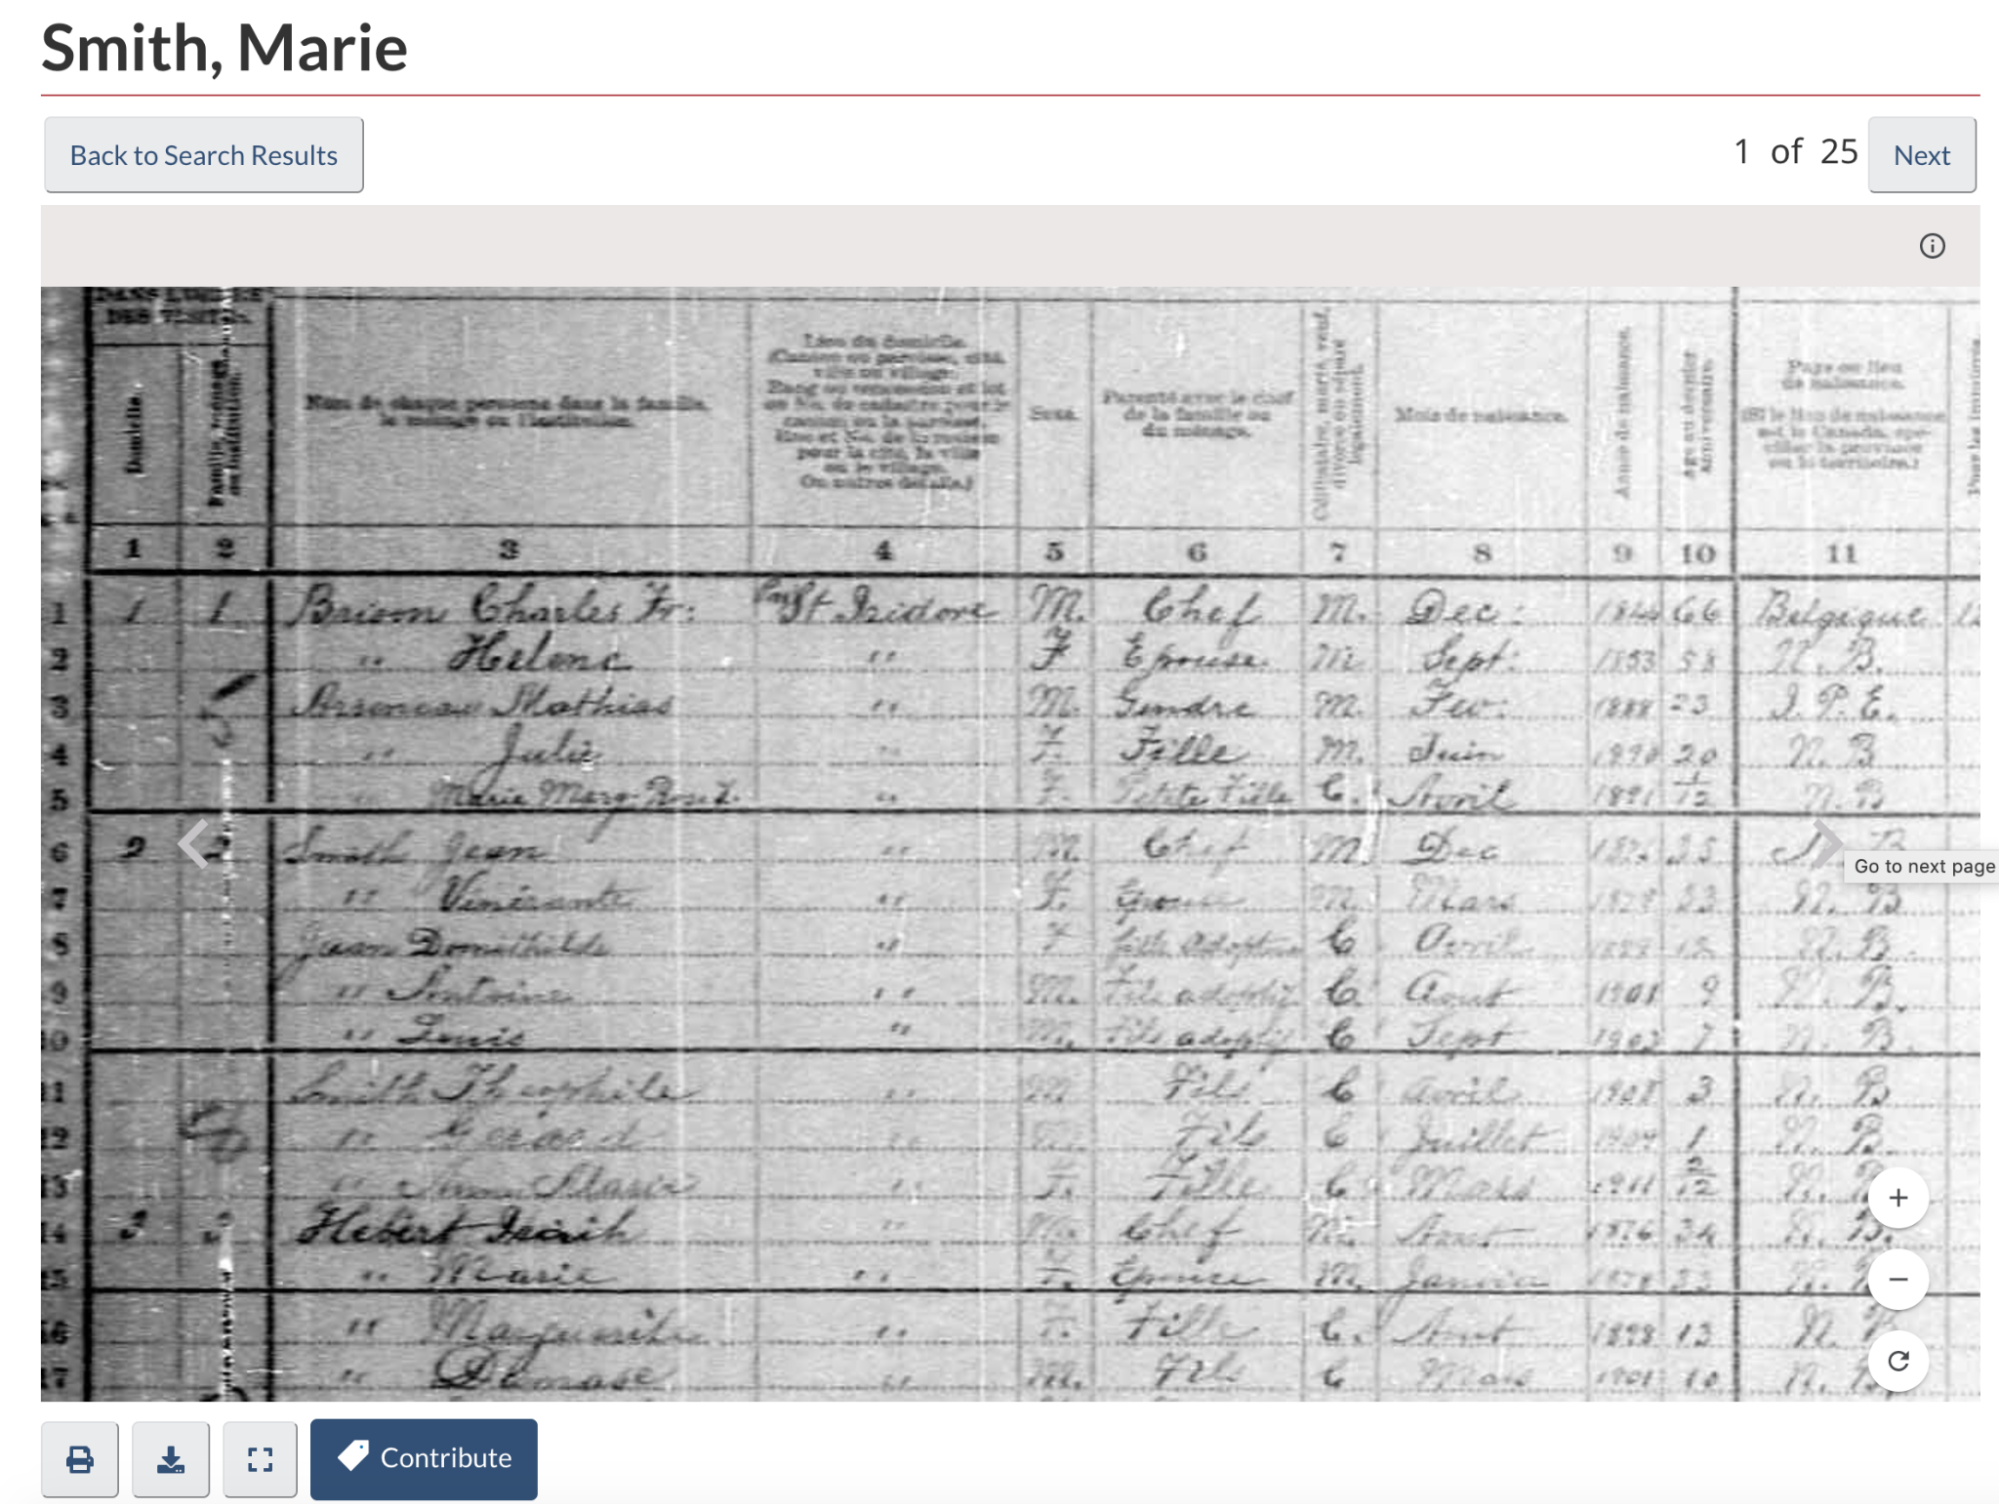 Smith, Marie
Back to Search Results
1 of 25 Next
DES VISITES.
Domicile.
Nom de chaque personne dans la famille,
le ménage ou l'institution.
Lieu du domicile.
(Canton ou paroisse, cité,
ville ou village.
Rang ou concession et lot
ou No. de cadastre pour le
canton ou la paroisse.
Rue et No. de la maison
pour la cité, la ville
ou le village.
Ou autres détails.)
Sexe.
Parenté avec le chef
de la famille ou
du ménage.
Célibataire, marié, veuf,
divorcé ou séparé
légalement.
Mois de naissance.
Année de naissance.
Age au dernier
anniversaire.
Pays ou lieu
de naissance.
(Si le lieu de naissance
est le Canada, spé-
cifier la province
ou le territoire.)
1 2 3 4 5 6 7 8 9 10 11
1 1 1 Charles Fr: St Isidore M. Chef M. Dec: 66 Belgique
2 " Helene " F Epouse Sept: 1853 58 N. B.
3 Mathias " M. Gendre M. Fev: 1888 23 I. P. E.
4 " Julie " F. Fille M. Juin 1890 20 N. B
5 Marie Marg. " F. Petite Fille C. Avril 1/12 N. B
6 2 2 Smith Jean " M. Chef M Dec 35 N. B
7 " " F. Epouse M. Mars 33 N. B
8 " F C Avril N. B.
9 " Antoine " M. Fils adoptif C. Aout 1901 9 N. B.
10 " Louis " M. Fils adoptif C Sept 1903 7 N. B.
11 Smith Theophile " M Fils C Avril 1908 3 N. B
12 " Gerard " M. Fils C Juillet 1909 1 N. B.
13 " Marie " F. Fille C Mars 1911 2/12 N.
14 3 3 Hebert " M. Chef M. Aout 1876 34 N. B.
15 " Marie " F. Epouse M. Janvier N.
16 " Marguerite " F. Fille C. Aout 1898 13 N.
17 " Damase " M. Fils C Mars 1901 10 N. B.
Go to next page
Contribute